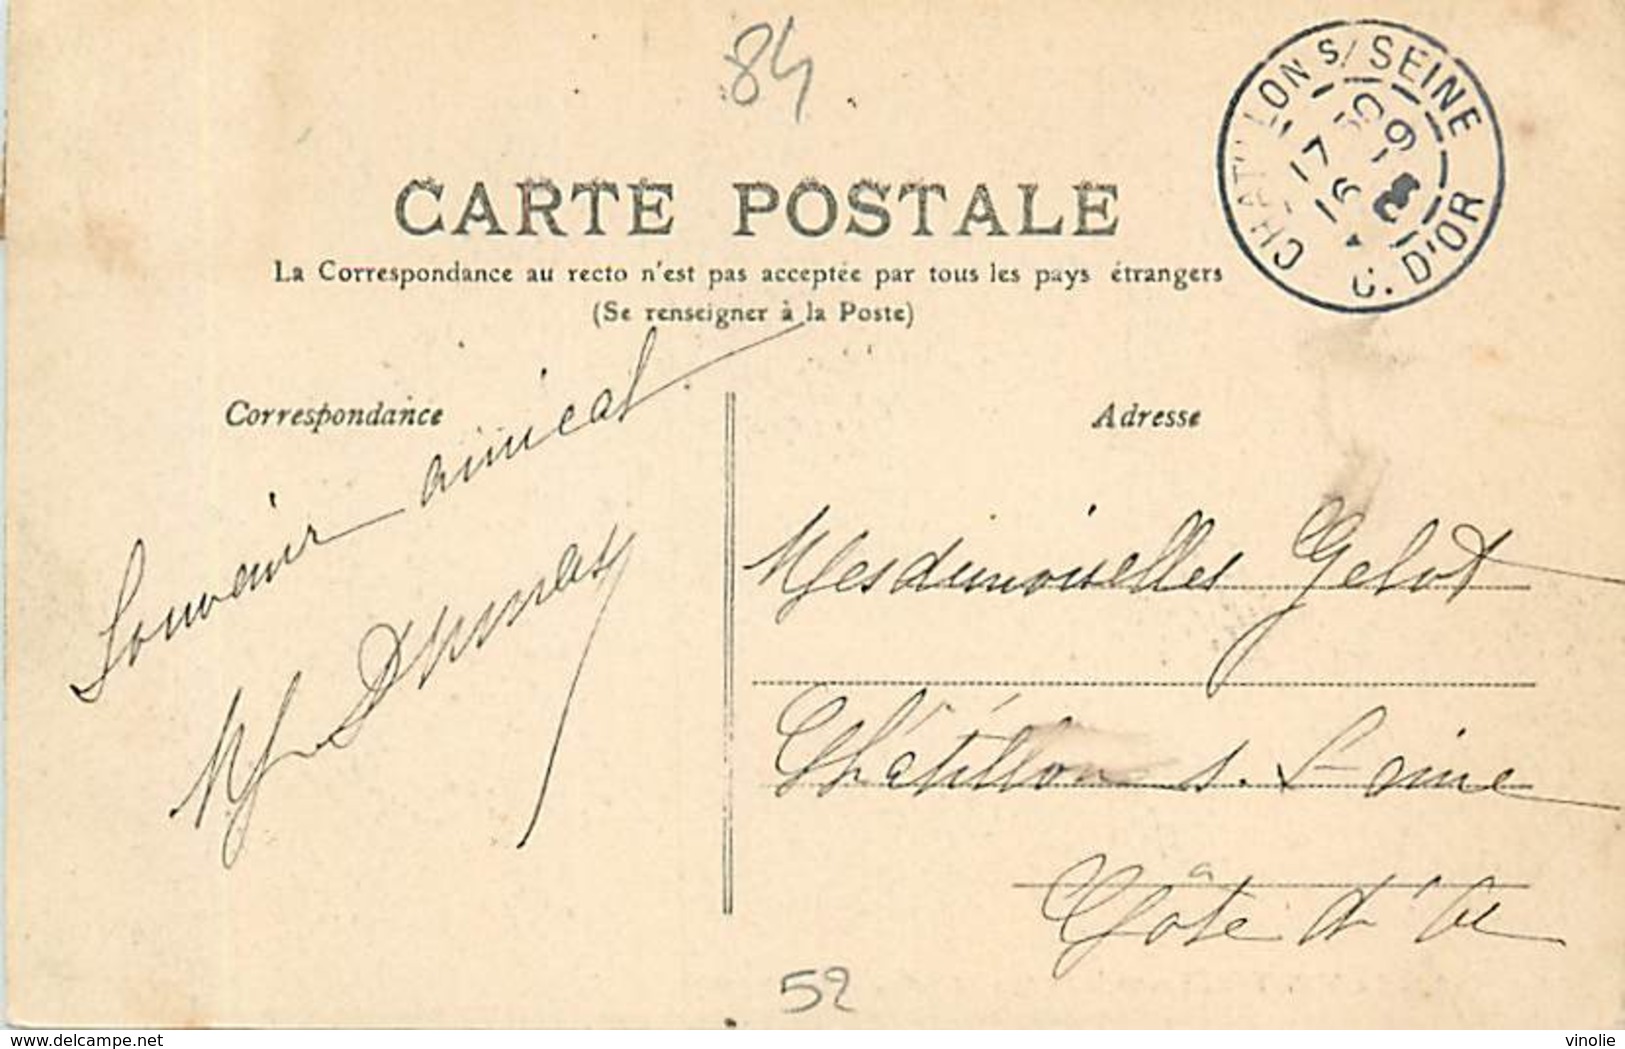 84
CHATILLON S/ SEINE
17 30
16 - 9
C. D'OR
CARTE POSTALE
La Correspondance au recto n'est pas acceptée par tous les pays étrangers
(Se renseigner à la Poste)
Correspondance
Souvenir amical
Adresse
Mesdemoiselles Gelot
Châtillon s. Seine
Côte d'Or
52
www.delcampe.net
vinolie